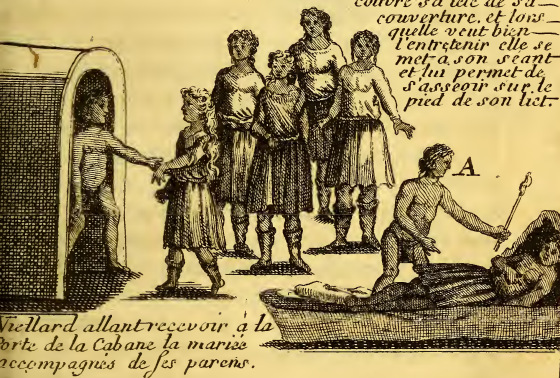 couvre sa tete de sa
couverture, et lors
quelle veut bien
l'entretenir elle se
met a son seant
et lui permet de
s'asseoir sur le
pied de son lict
A
Viellard allant recevoir à la
Porte de la Cabane la mariée
accompagnés de ses parens.